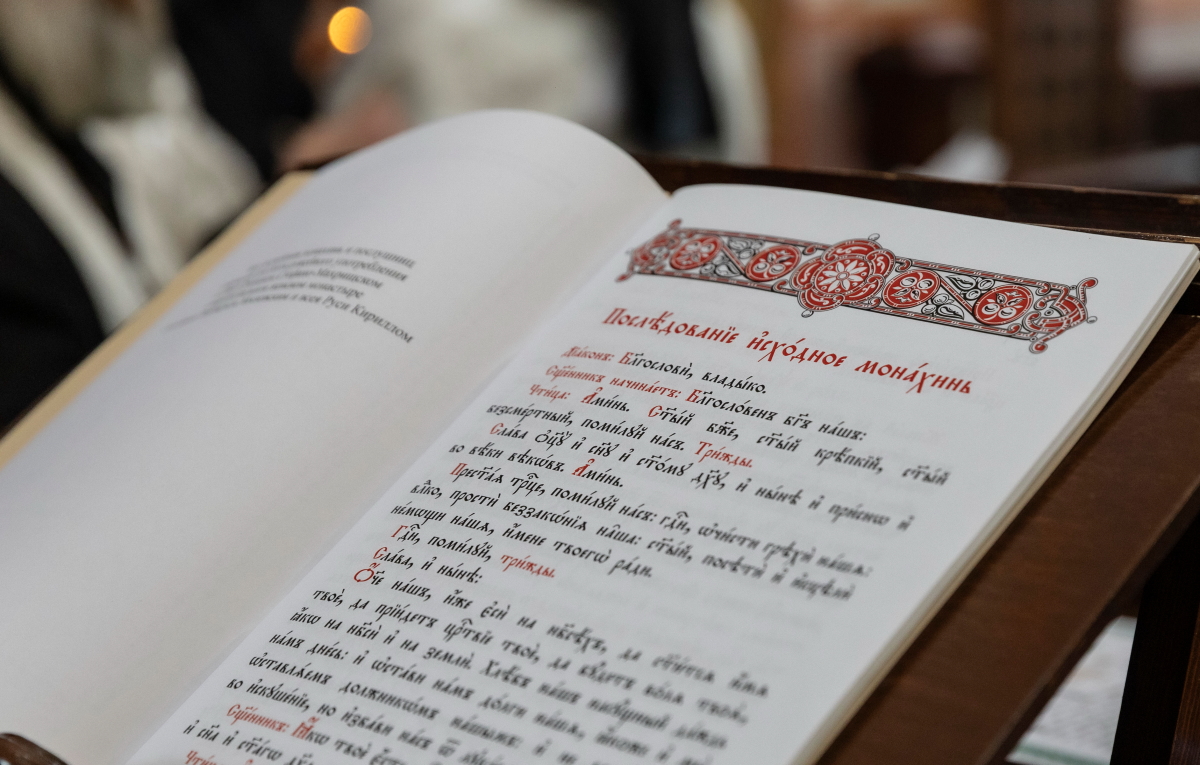 и послушниц
погребения
Мариинском
монастыре
и всея Руси Кириллом
Послѣ́дованїе и҆схо́дное мона́хинь
Дїа́конъ: Благослови̂, влады́ко.
Сщ҃е́нникъ начина́етъ: Бл҃гослове́нъ бг҃ъ на́шъ:
Чти́ца: А҆ми́нь. Ст҃ы́й бж҃е, ст҃ы́й крѣ́пкїй, ст҃ы́й
безсме́ртный, поми́лꙋй на́съ. Три́жды.
Сла́ва ѻ҆ц҃ꙋ̀ и҆ сн҃ꙋ и҆ ст҃о́мꙋ дх҃ꙋ, и҆ ны́нѣ и҆ при́снѡ и҆
во вѣ́ки вѣкѡ́въ. А҆ми́нь.
Прест҃а́ѧ трⷪ҇це, поми́лꙋй на́съ: гдⷭ҇и, ѡ҆чи́сти грѣхѝ на́шѧ:
влⷣко, простѝ беззакѡ́нїѧ на̑ша: ст҃ы́й, посѣтѝ и҆ и҆сцѣлѝ
не́мѡщи на́шѧ, и҆́мене твоегѡ̀ ра́ди.
Гдⷭ҇и, поми́лꙋй, три́жды.
Сла́ва, и҆ ны́нѣ:
Ѻ҆́ч҃е на́шъ, и҆́же є҆сѝ на нб҃сѣ́хъ, да ст҃и́тсѧ и҆́мѧ
твоѐ, да прїи́детъ црⷭ҇твїе твоѐ, да бꙋ́детъ во́лѧ твоѧ̀,
ꙗ҆́кѡ на нб҃сѝ и҆ на землѝ. Хлѣ́бъ на́шъ насꙋ́щный да́ждь
на́мъ дне́сь: и҆ ѡ҆ста́ви на́мъ до́лги на́шѧ, ꙗ҆́коже и҆ мы̀
ѡ҆ставлѧ́емъ должникѡ́мъ на́шымъ: и҆ не
во и҆скꙋше́нїе, но и҆зба́ви на́съ ѿ
Сщ҃е́нникъ: Ꙗ҆́кѡ твоѐ є҆́сть
и҆ сн҃а и҆ ст҃а́гѡ дх҃а
Чти́ца: